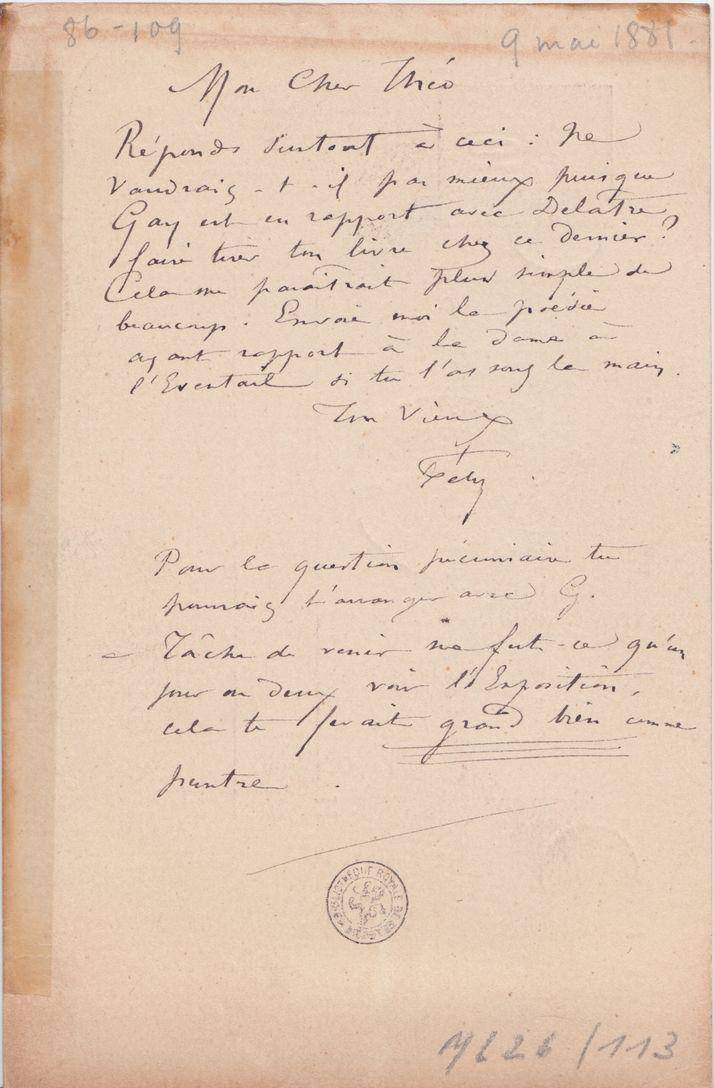 86-109
9 mai 1881
Mon Cher Théo
Réponds surtout à ceci : Ne
vaudrais-t-il pas mieux puisque
Gay est en rapport avec Delâtre
faire tirer ton livre chez ce dernier ?
Cela me paraîtrait plus simple de
beaucoup. Envoie moi la poésie
ayant rapport à la Dame à
l'Eventail si tu l'as sous la main.
Ton Vieux
Fély
Pour la question pécuniaire tu
pourrais t'arranger avec G.
– Tâche de venir ne fut-ce qu'un
jour ou deux voir l'Exposition,
cela te ferait grand bien comme
peintre.
BIBLIOTHÈQUE ROYALE DE
ML 26 /113